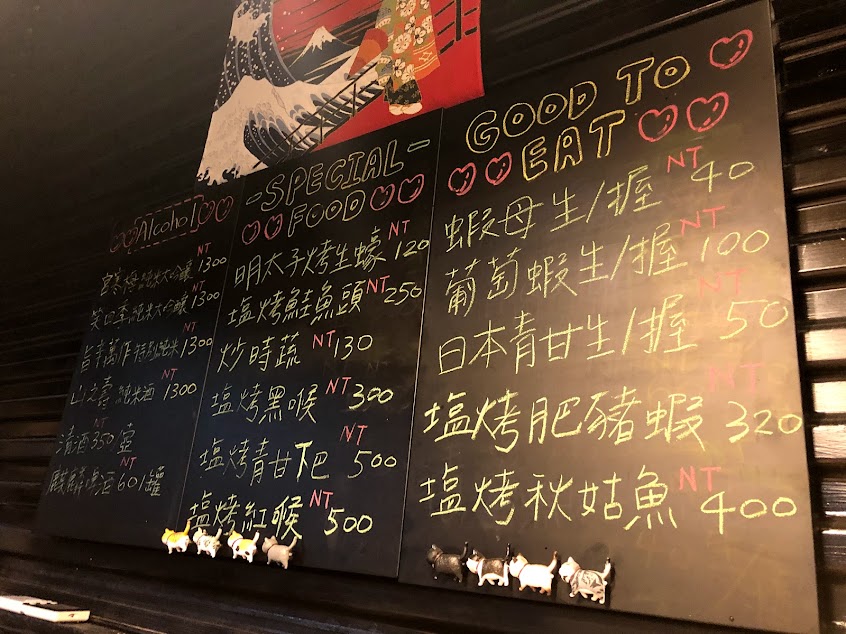 Alcohol
寒梅 純米大吟醸 NT 1300
笑四季 純米大吟釀 NT 1300
旨李萬作 特別純米 NT 1300
山之壽 純米酒 NT 1300
清酒 NT 350/壺
麒麟啤酒 NT 60/罐
-SPECIAL-
FOOD
明太子烤生蠔 NT 120
塩烤鮭魚頭 NT 250
炒時蔬 NT 130
塩烤黑喉 NT 300
塩烤青甘下巴 NT 500
塩烤紅喉 NT 500
GOOD TO
EAT
蝦母生/握 NT 40
葡萄蝦生/握 NT 100
日本青甘生/握 NT 50
塩烤肥豬蝦 NT 320
塩烤秋姑魚 NT 400